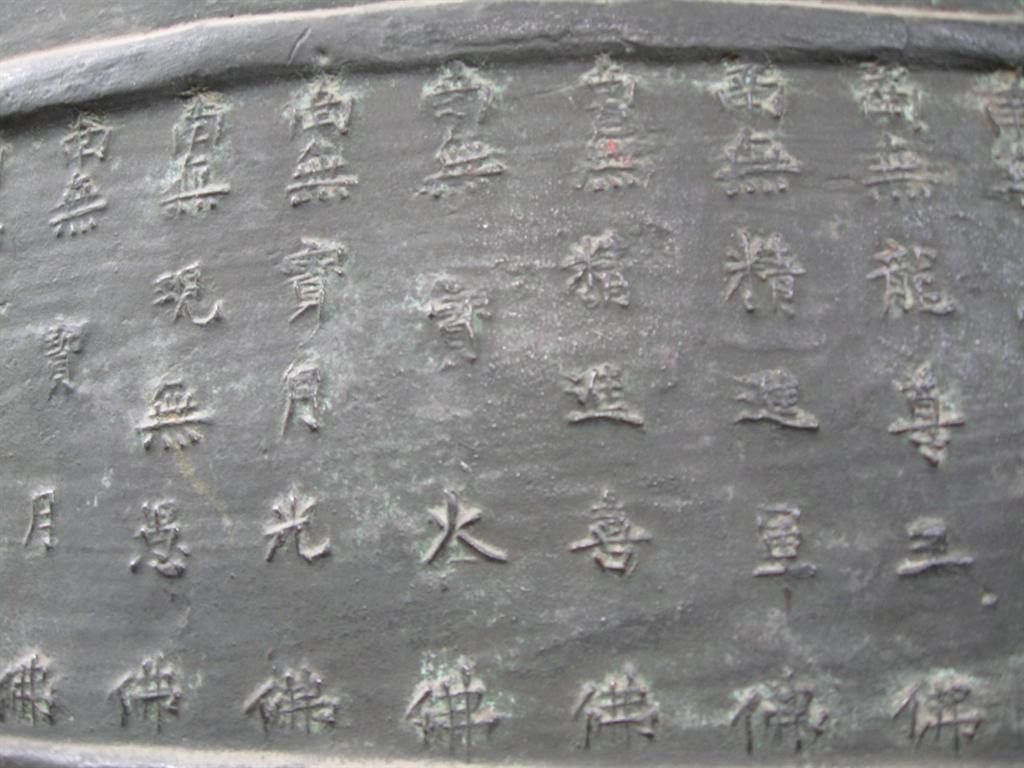 南無龍尊王佛
南無精進軍佛
南無精進喜佛
南無寶火佛
南無寶月光佛
南無現無愚佛
南無寶月佛